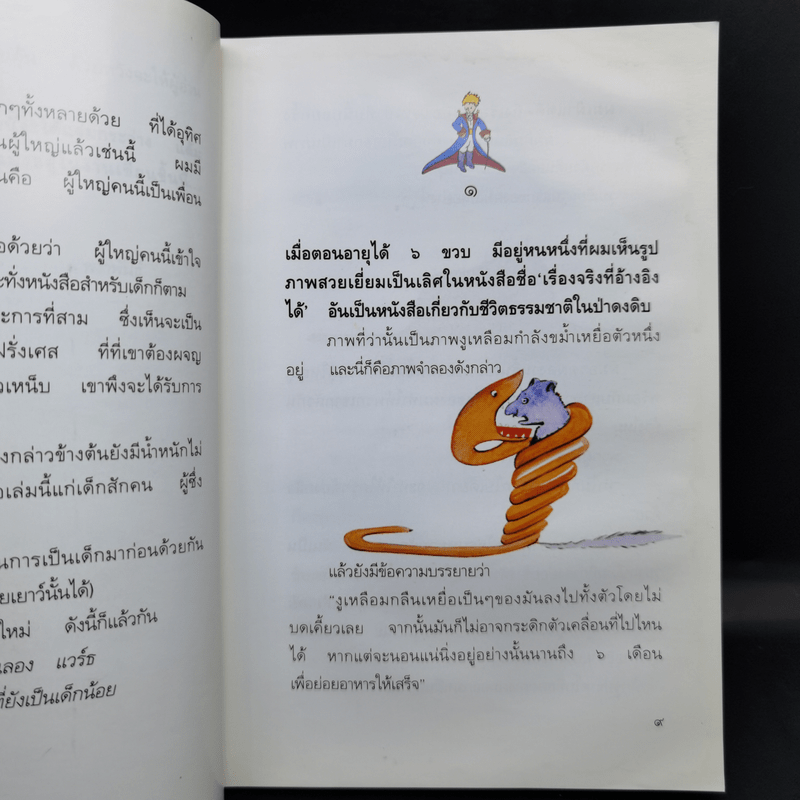 กๆทั้งหลายด้วย ที่ได้อุทิศ
นผู้ใหญ่แล้วเช่นนี้ ผมมี
นคือ ผู้ใหญ่คนนี้เป็นเพื่อน
อด้วยว่า ผู้ใหญ่คนนี้เข้าใจ
ะทั่งหนังสือสำหรับเด็กก็ตาม
ะการที่สาม ซึ่งเห็นจะเป็น
ฝรั่งเศส ที่ที่เขาต้องผจญ
วเหน็บ เขาพึงจะได้รับการ
งกล่าวข้างต้นยังมีน้ำหนักไม่
อเล่มนี้แก่เด็กสักคน ผู้ซึ่ง
นการเป็นเด็กมาก่อนด้วยกัน
ยเยาว์นั้นได้)
ใหม่ ดังนี้ก็แล้วกัน
ลอง แวร์ธ
ที่ยังเป็นเด็กน้อย
๑
เมื่อตอนอายุได้ ๖ ขวบ มีอยู่หนหนึ่งที่ผมเห็นรูป
ภาพสวยเยี่ยมเป็นเลิศในหนังสือชื่อ‘เรื่องจริงที่อ้างอิง
ได้’ อันเป็นหนังสือเกี่ยวกับชีวิตธรรมชาติในป่าดงดิบ
ภาพที่ว่านั้นเป็นภาพงูเหลือมกำลังขม้ำเหยื่อตัวหนึ่ง
อยู่ และนี่ก็คือภาพจำลองดังกล่าว
แล้วยังมีข้อความบรรยายว่า
“งูเหลือมกลืนเหยื่อเป็นๆของมันลงไปทั้งตัวโดยไม่
บดเคี้ยวเลย จากนั้นมันก็ไม่อาจกระดิกตัวเคลื่อนที่ไปไหน
ได้ หากแต่จะนอนแน่นิ่งอยู่อย่างนั้นนานถึง ๖ เดือน
เพื่อย่อยอาหารให้เสร็จ”
๙